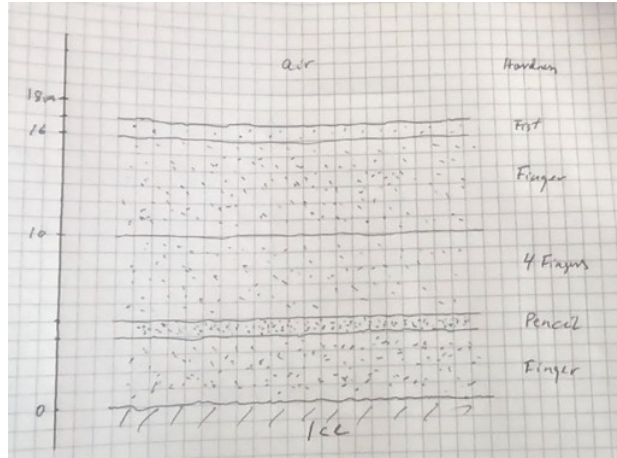 air
Hardness
18
16
Fist
Finger
10
4 Fingers
Pencil
Finger
0
Ice